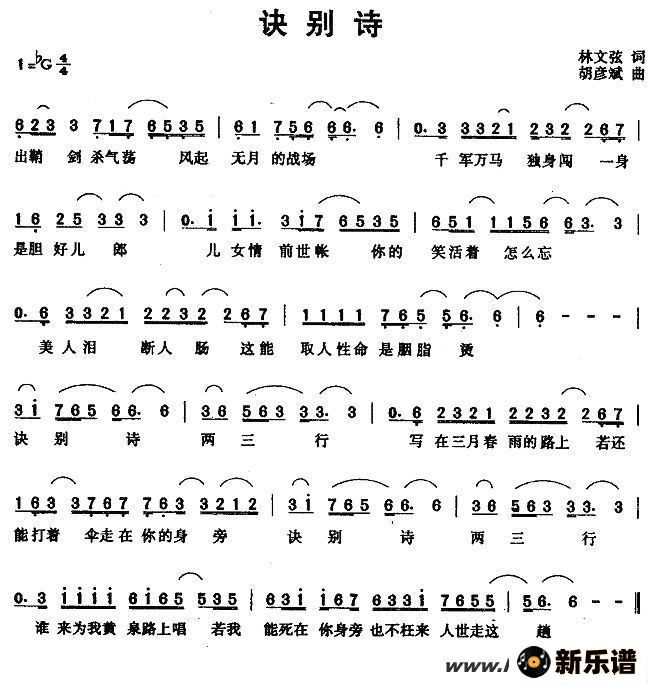 诀别诗
1=♭G 4/4
林文弦 词
胡彦斌 曲
6 2 3 3 7 1 7 6 5 3 5 | 6 1 7 5 6 6 6. 6 | 0. 3 3 3 2 1 2 3 2 2 6 7 |
出鞘 剑 杀气荡 风起 无月 的战场 千 军万马 独身闯 一身
1 6 2 5 3 3 3 | 0. i i i. 3 i 7 6 5 3 5 | 6 5 1 1 1 5 6 6 3. 3 |
是胆 好儿 郎 儿 女情 前世帐 你的 笑活着 怎么忘
0. 6 3 3 2 1 2 2 3 2 2 6 7 | 1 1 1 1 7 6 5 5 6. 6 | 6 - - - |
美人泪 断人 肠 这能 取人性命 是胭脂 烫
3 i 7 6 5 6 6. 6 | 3 6 5 6 3 3 3. 3 | 0. 6 2 3 2 1 2 2 3 2 2 6 7 |
诀 别 诗 两 三 行 写 在三月春 雨的路上 若还
1 6 3 3 7 6 7 7 6 3 3 2 1 2 | 3 i 7 6 5 6 6. 6 | 3 6 5 6 3 3 3. 3 |
能打着 伞走在 你的身 旁 诀 别 诗 两 三 行
0. 3 i i i i 6 i 6 5 5 3 5 | 6 3 i i 6 7 6 3 3 i 7 6 5 5 | 5 6. 6 - - ‖
谁 来为我黄 泉路上唱 若我 能死在 你身旁 也不枉来 人世走这 趟
www.
新乐谱